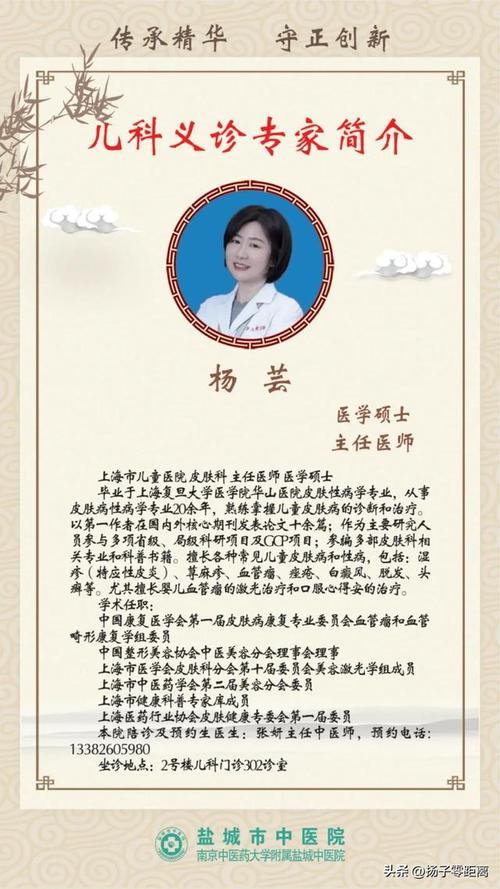 传承精华 守正创新
儿科义诊专家简介
杨芸
医学硕士
主任医师
上海市儿童医院 皮肤科 主任医师 医学硕士
毕业于上海复旦大学医学院华山医院皮肤性病学专业，从事
皮肤病性病学专业20余年，熟练掌握儿童皮肤病的诊断和治疗。
以第一作者在国内外核心期刊发表论文十余篇；作为主要研究人
员参与多项省级、局级科研项目及GCP项目；参编多部皮肤科相
关专业和科普书籍。擅长各种常见儿童皮肤病和性病，包括：湿
疹（特应性皮炎）、荨麻疹、血管瘤、痤疮、白癜风、脱发、头
癣等。尤其擅长婴儿血管瘤的激光治疗和口服心得安的治疗。
学术任职：
中国康复医学会第一届皮肤病康复专业委员会血管瘤和血管
畸形康复学组委员
中国整形美容协会中医美容分会理事会理事
上海市医学会皮肤科分会第十届委员会美容激光学组成员
上海市中医药学会第二届美容分会委员
上海市健康科普专家库成员
上海医药行业协会皮肤健康专委会第一届委员
本院陪诊及预约生医生：张妍主任中医师，预约电话：
13382605980
坐诊地点：2号楼儿科门诊302诊室
盐城市中医院
南京中医药大学附属盐城中医院
头条 @扬子零距离